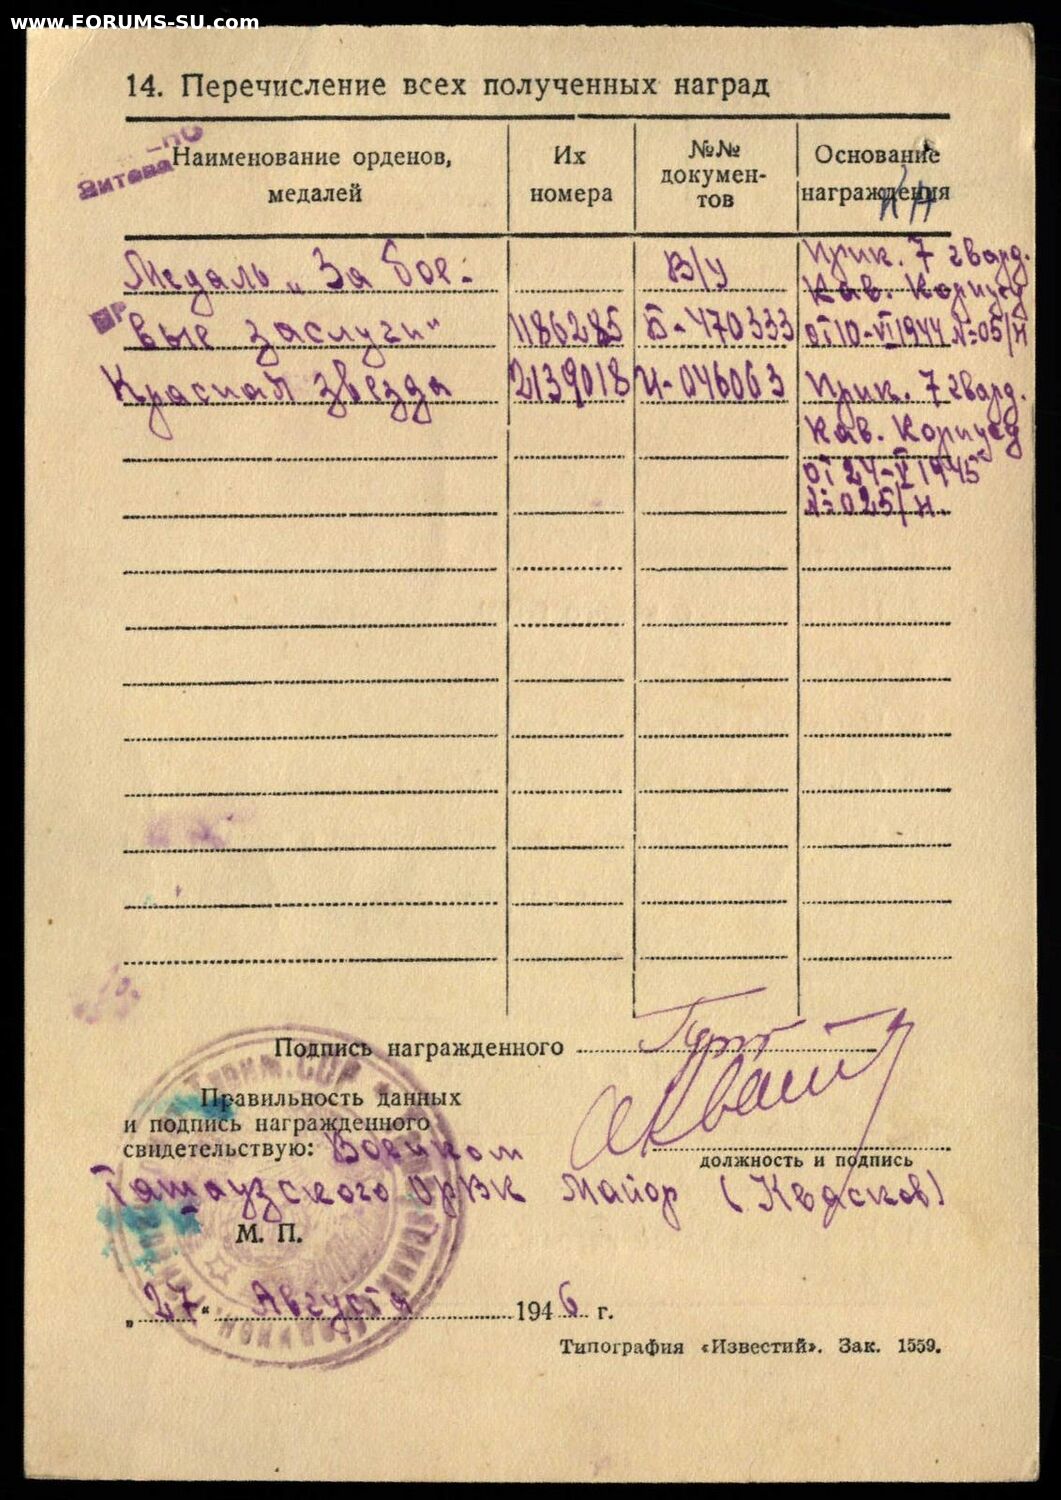 www.FORUMS-SU.com
14. Перечисление всех полученных наград
Наименование орденов, медалей
Их номера
№№ докумен-тов
Основание награждения
Медаль „За бое-
В/у
Прик. 7 гвард.
Кав. Корпуса
вые заслуги"
1186285
Б-470333
от 10-VI 1944 №05/н
Красная звезда
2139018
И-046063
Прик. 7 гвард.
Кав. Корпуса
от 24-V 1945
№025/н.
Подпись награжденного
Правильность данных
и подпись награжденного
свидетельствую: Военком
должность и подпись
Ташаузского ОРВК Майор (Квасков)
М. П.
„27" Августа 1946 г.
Типография «Известий». Зак. 1559.